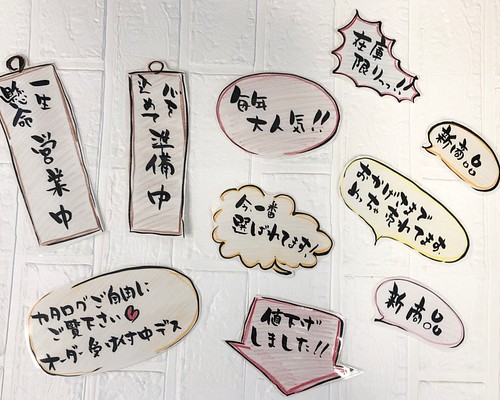 一生
懸命
営業中
心を
込めて
準備中
毎年
大人気!!
在庫
限りっっ!!
新商品
おかげさまで
めっちゃ売れてます!
今一番
選ばれてます!
カタログご自由に
ご覧下さい
オーダー受け付け中デス
値下げ
しました!!
新商品